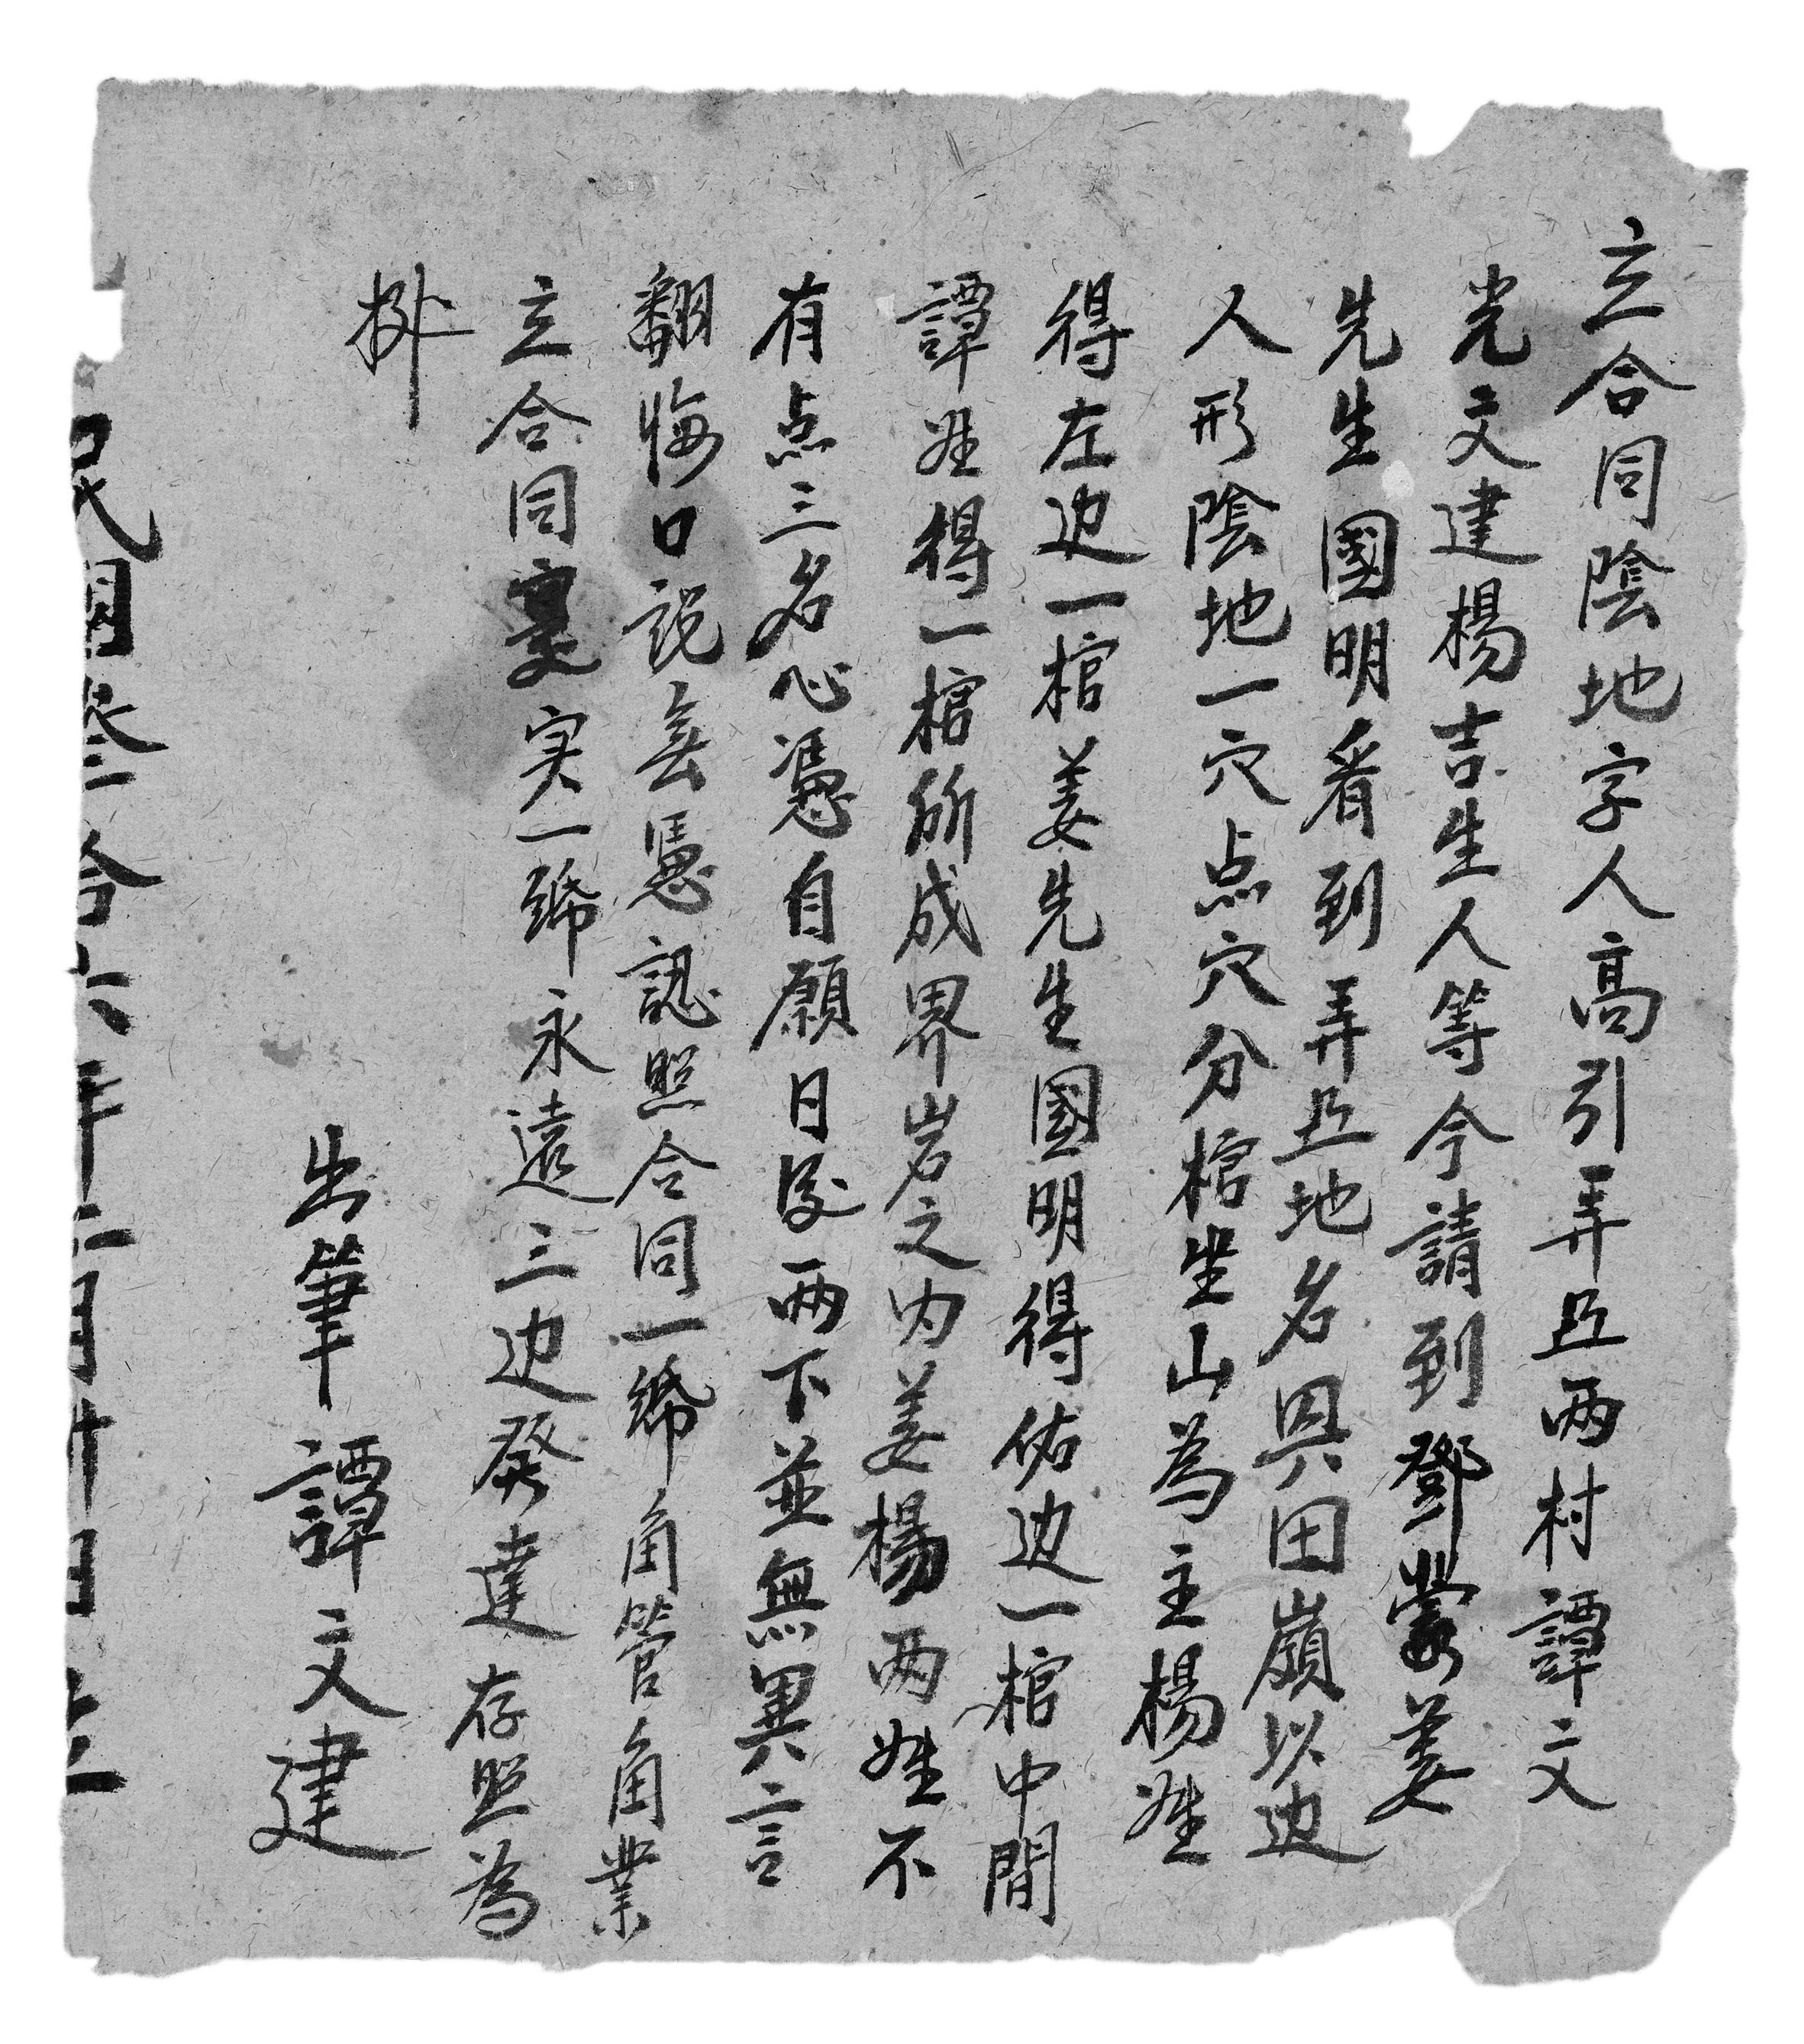 立合同陰地字人高引弄丑两村譚文
光文建楊吉生人等今請到鄧蒙姜
先生國明看到弄丑地名具田嶺以边
人形陰地一穴点穴分棺坐山為主楊姓
得左边一棺姜先生國明得佑边一棺中間
譚姓得一棺所成界岩之内姜楊两姓不
有点三名心憑自願日後两下並無異言
翻悔口説無憑認照合同一號角管角業
立合同裏实一號永遠三边癸達存照為
拠
出筆譚文建
民國叁拾六年二月廿日立